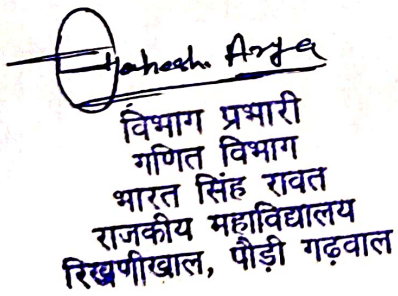 Mahesh Arya
विभाग प्रभारी
गणित विभाग
भारत सिंह रावत
राजकीय महाविद्यालय
रिखणीखाल, पौड़ी गढ़वाल